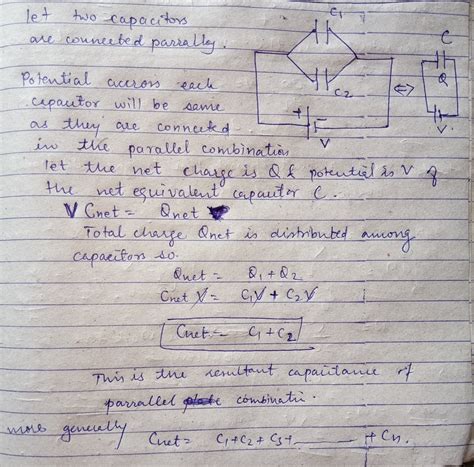 let two capacitors
are connected parrally.
C1
C2
+
V
⇔
C
Q
V
Potential accross each
capacitor will be same
as they are connected
in the parallel combination
let the net charge is Q & potential is V of
the net equivalent capacitor C.
V Cnet = Qnet
Total charge Qnet is distributed among
capacitors so.
Qnet = Q1 + Q2
Cnet V = C1V + C2V
Cnet = C1 + C2
This is the resultant capacitance of
parrallel combinatio.
more generally
Cnet = C1 + C2 + C3 + ______ + Cn.